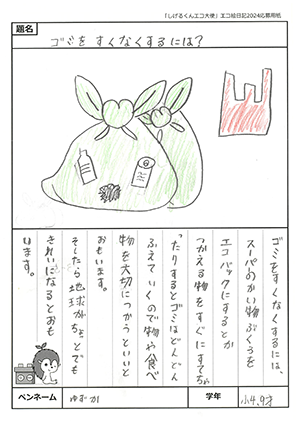 「しげるくんエコ大使」エコ絵日記2024応募用紙
題名
ゴミをすくなくするには?
ゴミをすくなくするには、
スーパーのかい物ぶくろを
エコバックにするとか
つかえる物をすぐにすてちゃ
ったりするとゴミはどんどん
ふえていくので物や食べ
物を大切につかうといいと
おもいます。
そしたら地球がちょっとでも
きれいになるとおも
います。
ペンネーム
ゆずか
学年
小4,9才